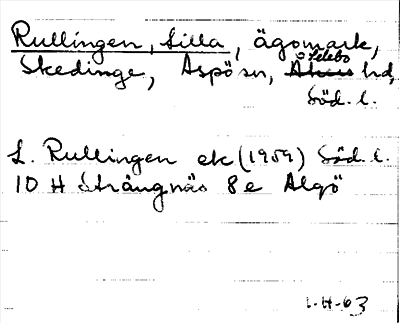 Rullingen, Lilla, ägomark,
Skedinge, Aspö sn, Selebo hd,
Söd. l.
L. Rullingen ek (1959) Söd. l.
10 H Strängnäs 8e Algö